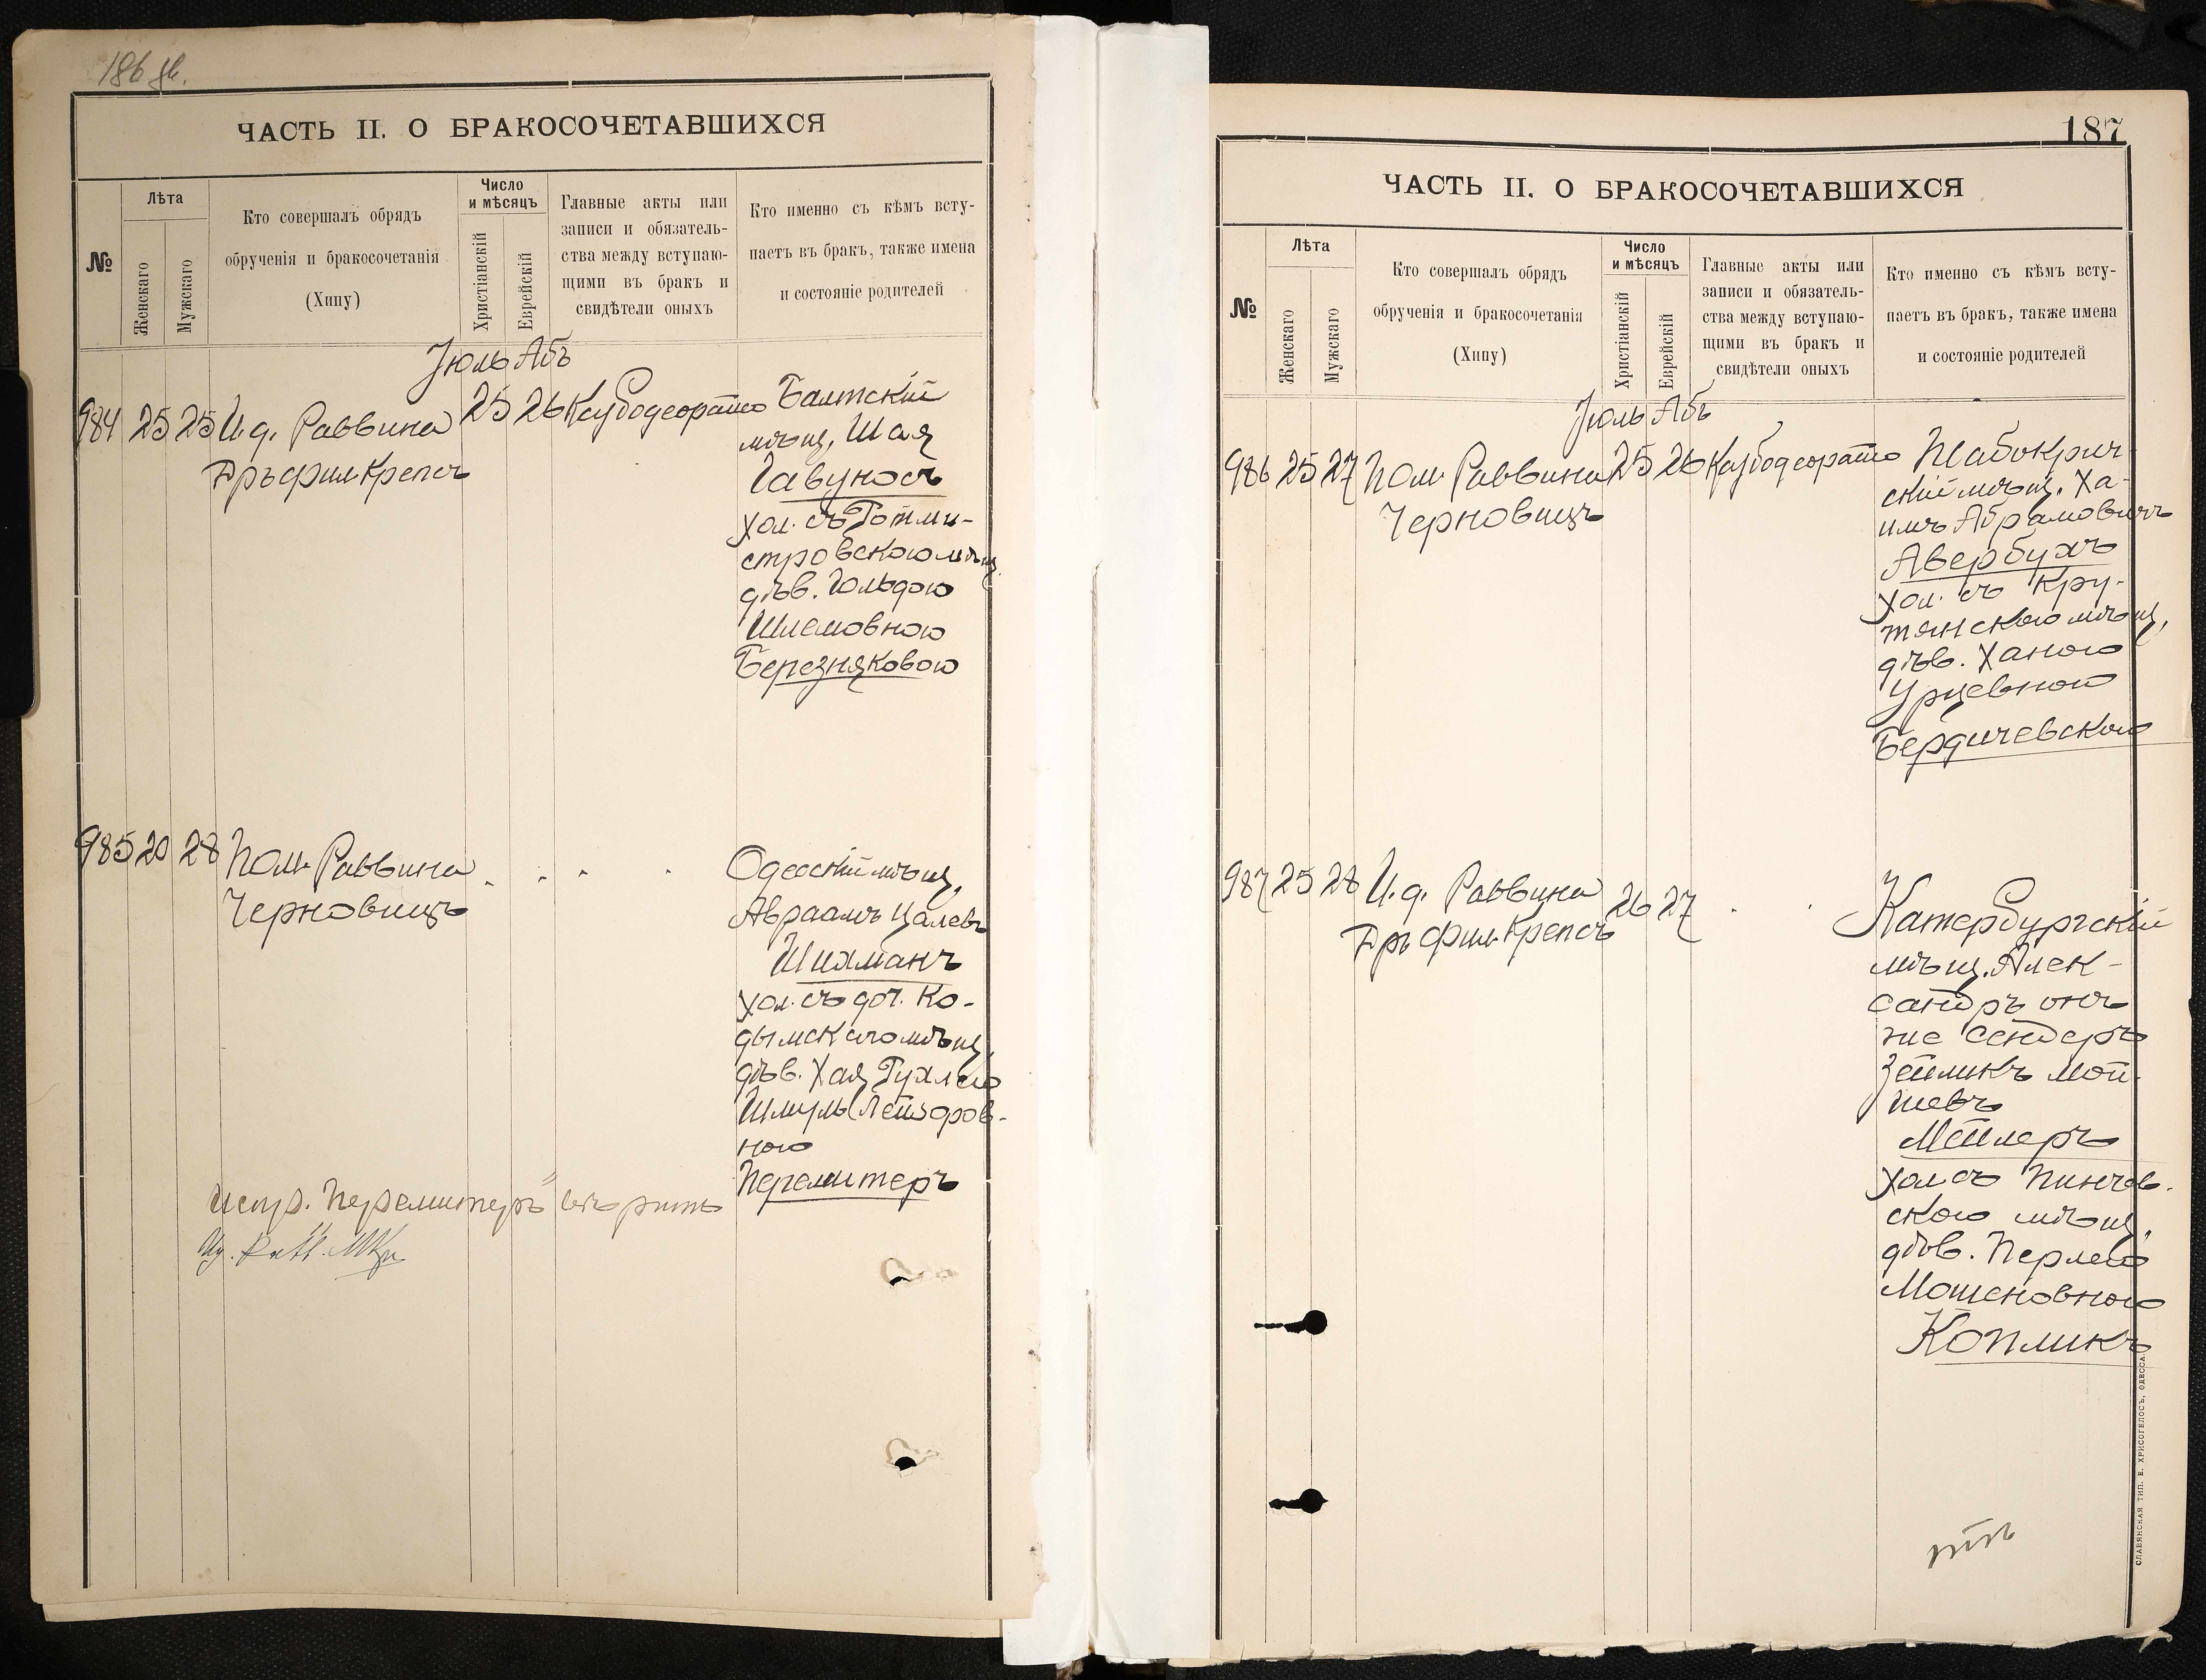 ЧАСТЬ II. О БРАКОСОЧЕТАВШИХСЯ
№
Лѣта
Женскаго
Мужскаго
Кто совершалъ обрядъ
обрученія и бракосочетанія
(Хипу)
Число
и мѣсяцъ
Христіанскій
Еврейскій
Главные акты или
записи и обязатель-
ства между вступаю-
щими въ бракъ и
свидѣтели оныхъ
Кто именно съ кѣмъ всту-
паетъ въ бракъ, также имена
и состояніе родителей
Іюль Абъ
984 25 25 И.д. Раввина 25 26
Д-ръ Фил. Крепсъ
Балтскій
мѣщ. Шая
Гавуносъ
хол. съ Ротми-
стровскою мѣщ.
дѣв. Гольдою
Шлемовною
Березняковою
985 20 28 Пом. Раввина
Черновицъ
Одесскій мѣщ.
Авраамъ Цалевъ
Шихманъ
хол. съ доч. Ко-
дымскаго мѣщ.
дѣв. Хая Рухлею
Шмуль Лейзоров-
ною
Перемитеръ
Испр. "Перемитеръ" вѣрить
ЧАСТЬ II. О БРАКОСОЧЕТАВШИХСЯ
187
№
Лѣта
Женскаго
Мужскаго
Кто совершалъ обрядъ
обрученія и бракосочетанія
(Хипу)
Число
и мѣсяцъ
Христіанскій
Еврейскій
Главные акты или
записи и обязатель-
ства между вступаю-
щими въ бракъ и
свидѣтели оныхъ
Кто именно съ кѣмъ всту-
паетъ въ бракъ, также имена
и состояніе родителей
Іюль Абъ
986 25 27 Пом. Раввина 25 26
Черновицъ
Шабокрич-
скій мѣщ. Ха-
имъ Абрамовичъ
Авербухъ
хол. съ Кру-
тянскою мѣщ.
дѣв. Ханою
Урцевной
Бердичевскою
987 25 28 И.д. Раввина 26 27
Д-ръ Фил. Крепсъ
Катербургскій
мѣщ. Алек-
сандръ онъ
же Сендеръ
Зейликъ Мой-
шевъ
Мейлеръ
хол. съ Пинчов-
скою мѣщ.
дѣв. Перлею
Мошеновною
Копликъ
СЛАВЯНСКАЯ ТИП. Е. ХРИСОГЕЛОСЪ, ОДЕССА.